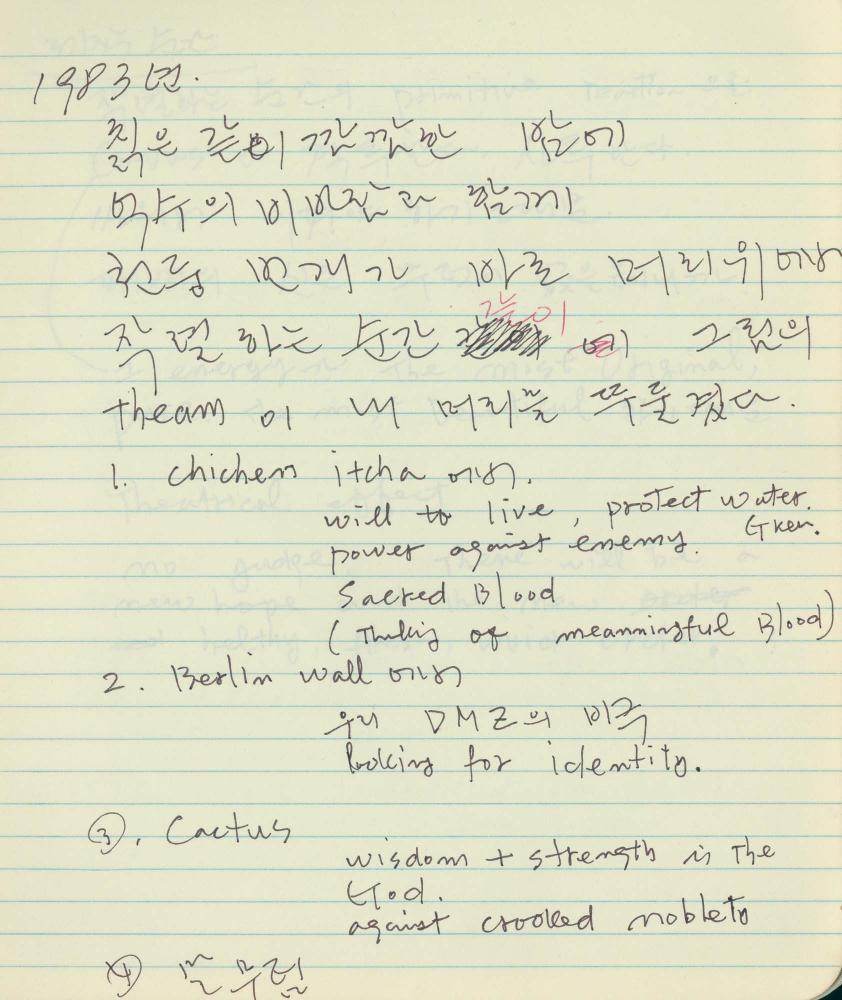 1983년.
칡은 같이 깜깜한 밤에
억수의 비바람과 함께
천둥 번개가 바로 머리위에서
작렬하는 순간 이 그림의
theam 이 내 머리를 뚜둘겼다.
1. chichen itcha 에서.
will to live, protect water.
power against enemy.
Sacred Blood
(Thinkig of meanningful Blood)
2. Berlin wall 에서
우리 DMZ의 비극
looking for identity.
③. Cactus
wisdom + strength is The
God.
against crooked
④ 몸부림